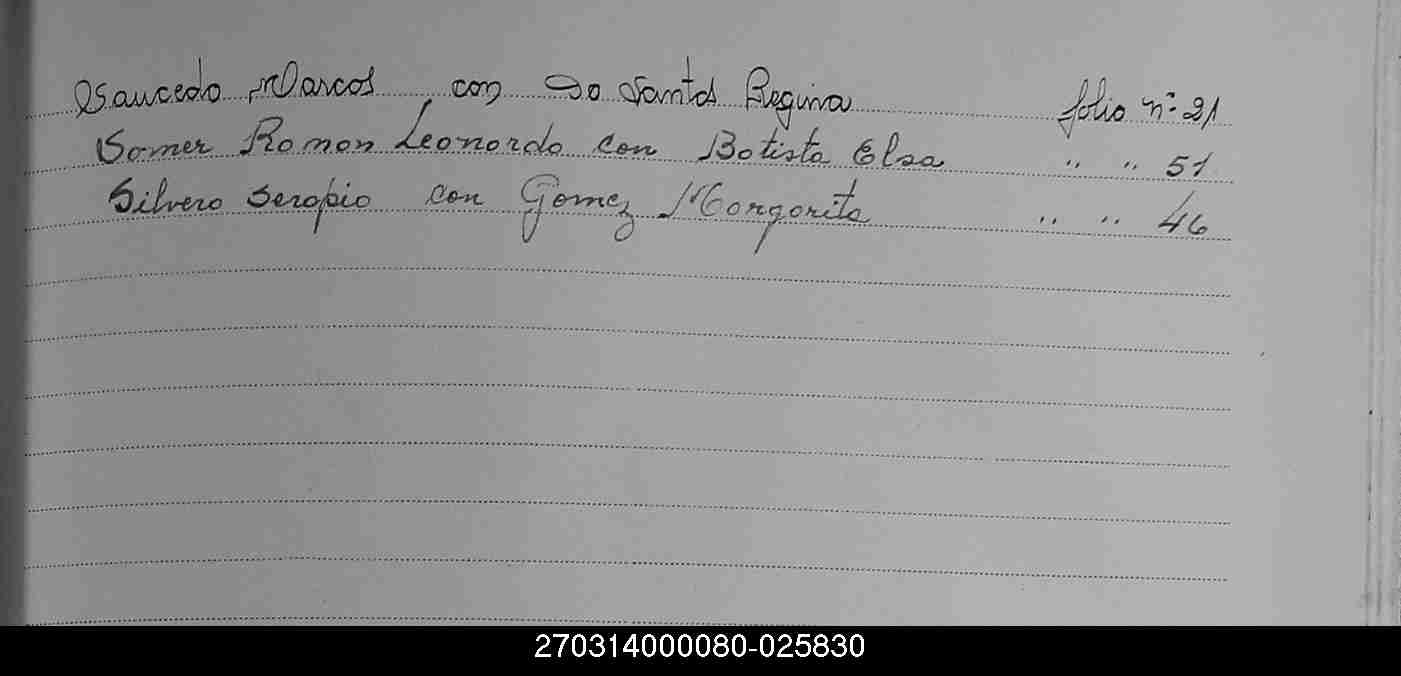 Saucedo Marcos con Do Santos Regina folio nº 21
Somer Ramon Leonardo con Batista Elsa " " 51
Silvero Serapio con Gomez Margarita " " 46
270314000080-025830